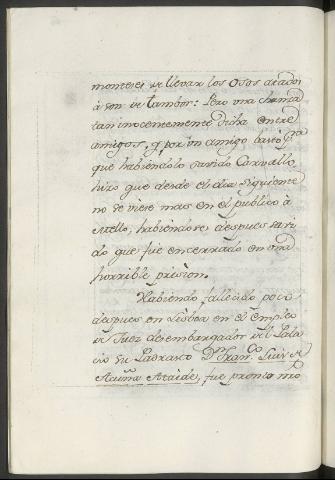 monteses de llevar los Osos atados
à son de tambor: Pero una chanza
tan inocentemente dicha entre
amigos, y por un amigo bastò p.ª
que habiendolo savido Carvallo
hizo que desde el dia siguiente
no se viese mas en el publico à
Mello, habiendose despues savi
do que fue encerrado en una
horrible prision.
Habiendo fallecido poco
despues en Lisboa en el empleo
de Juez desembargador del Pala
cio su Padrasto Dn. Fran.co Luis de
Acuña Ataide, fue pronto